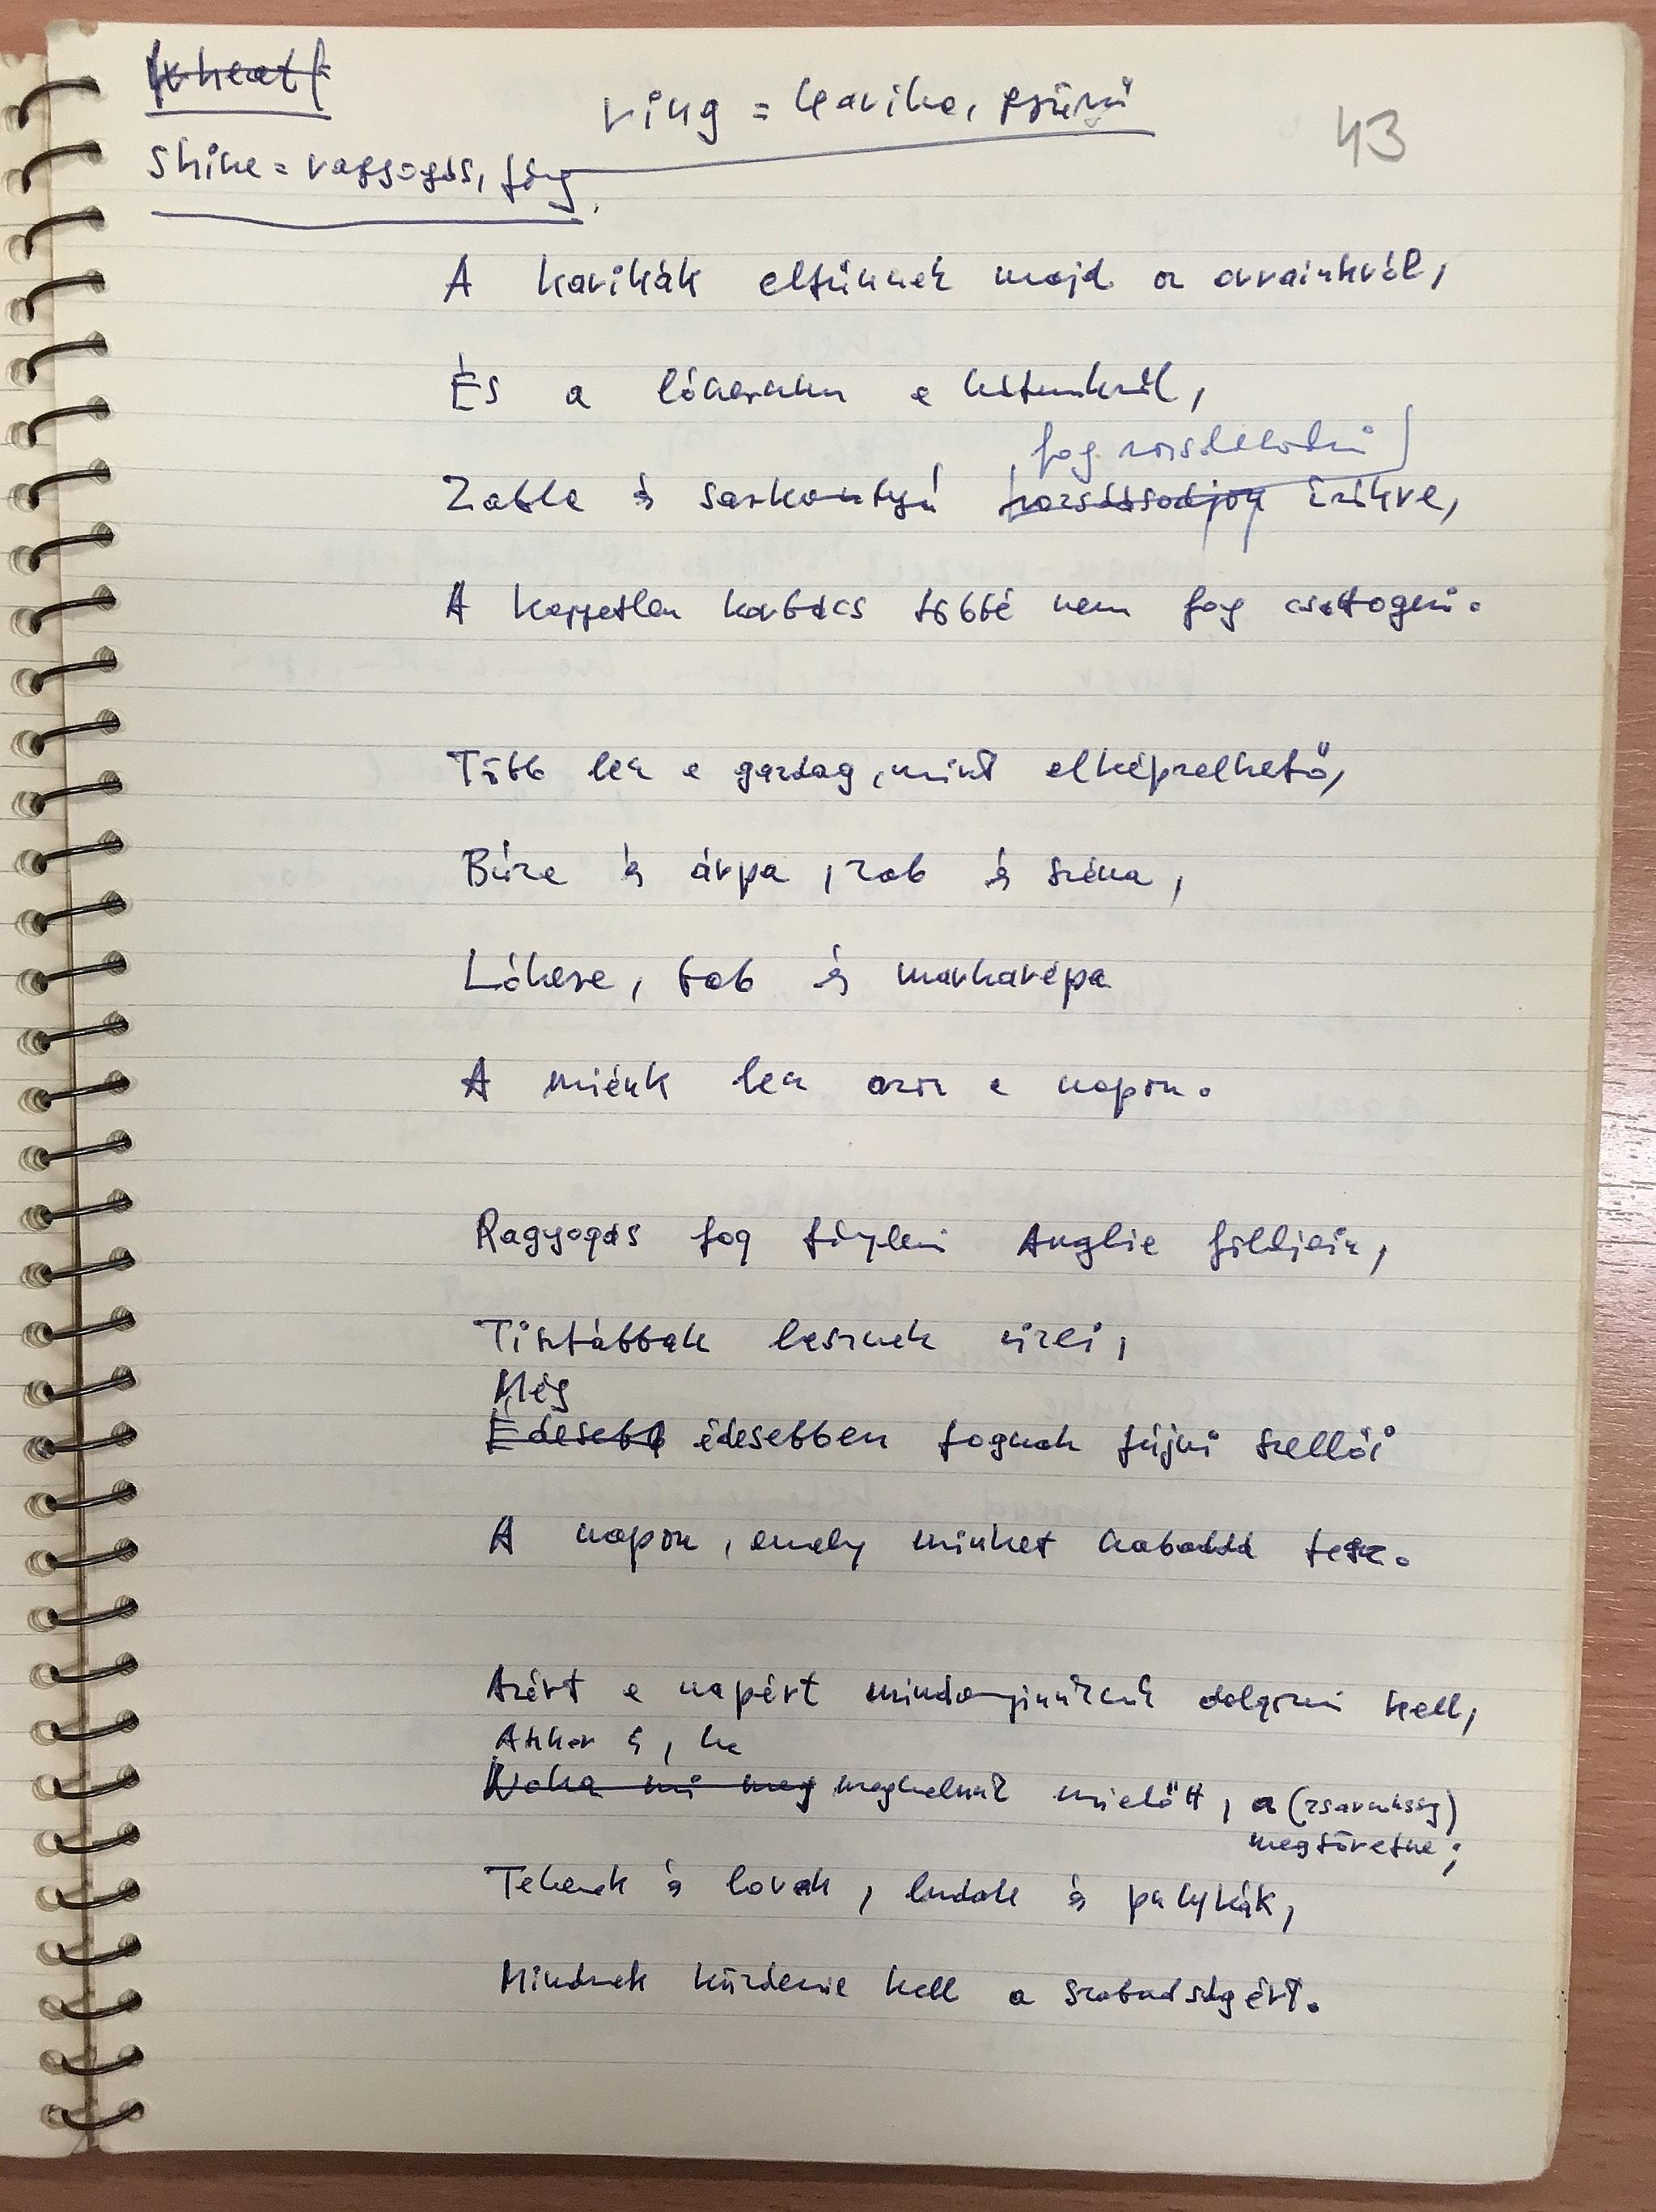 wheat
ring = karika, gyűrű
43
shine = ragyogás, fény
A karikák eltünnek majd az orrainkról,
És a lószerszám a hátunkról,
fog rozsdásodni
Zabla és sarkantyú rozsdásodjon örökre,
A kegyetlen korbács többé nem fog csattogni.
Több lesz a gazdag, mint elképzelhető,
Búza és árpa, zab és széna,
Lóhere, bab és markarépa
A miénk lesz azon a napon.
Ragyogás fog fényleni Anglia földjein,
Tisztábbak lesznek vizei,
Még
Édesebb édesebben fognak fújni szellői
A napon, amely minket szabaddá tesz.
Azért a napért mindannyiunknak dolgozni kell,
Akkor is, ha
Noha mi meg meghalnánk mielőtt, a (zsarnokság)
megtöretne;
Tehenek és lovak, ludak és pulykák,
Mindnek küzdenie kell a szabadságért.